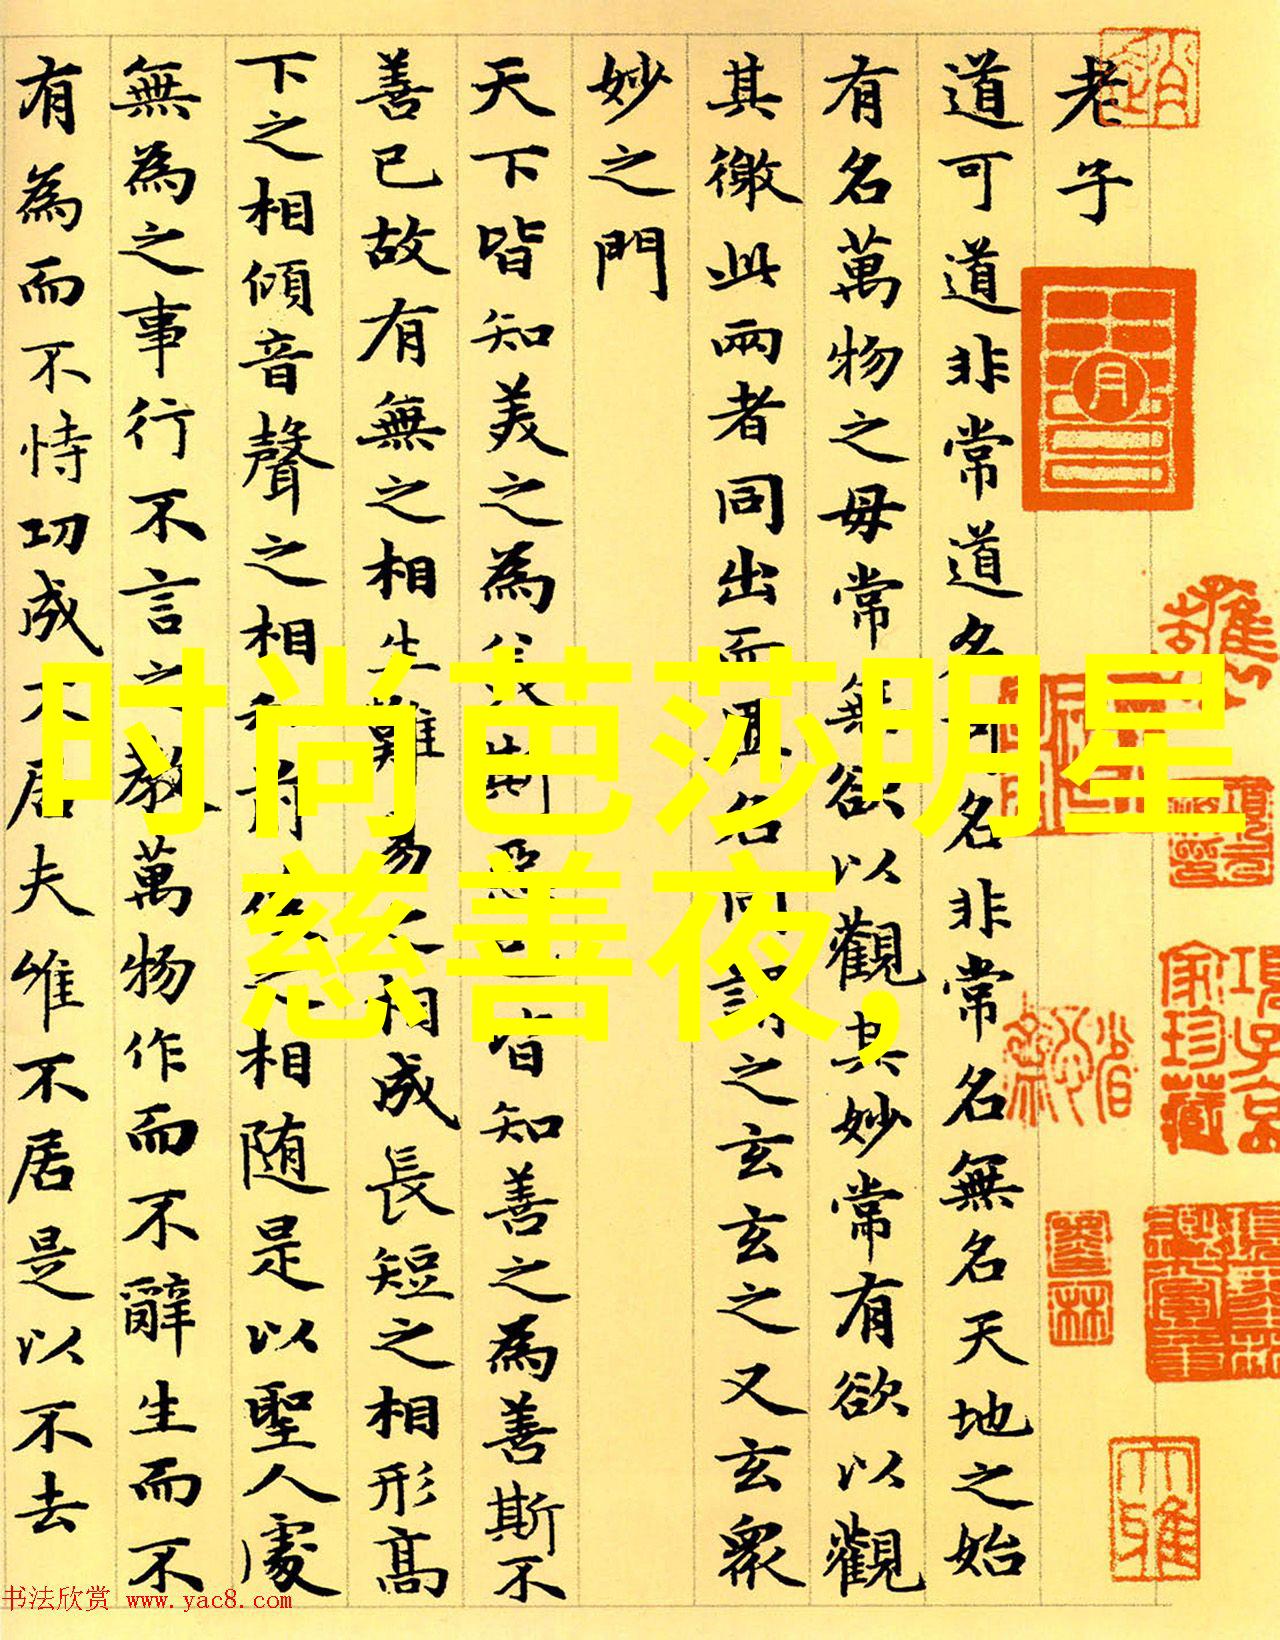 老子
道可道非常道名可名非常名無名天地之始
有名萬物之毋常無欲以觀其妙常有欲以觀
其徼此兩者同出而異名同謂之玄玄之又玄衆
妙之門
天下皆知美之為美斯惡已皆知善之為善斯不
善已故有無之相生難易之相成長短之相形高
下之相傾音聲之相和前後之相随是以聖人處
無為之事行不言之教萬物作而不辭生而不
有為而不恃功成不居夫唯不居是以不去
时尚芭莎明星
慈善夜,
书法欣赏 www.yac8.com